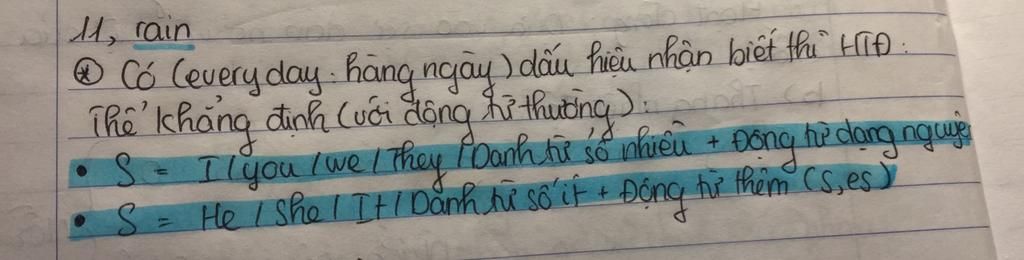 11, rain
⊛ Có (every day: hàng ngày) dấu hiệu nhận biết thì HTĐ:
Thể khẳng định (với động từ thường):
• S = I / you / we / They / Danh từ số nhiều + Động từ dạng nguyên
• S = He / She / It / Danh từ số ít + Động từ thêm (s, es)